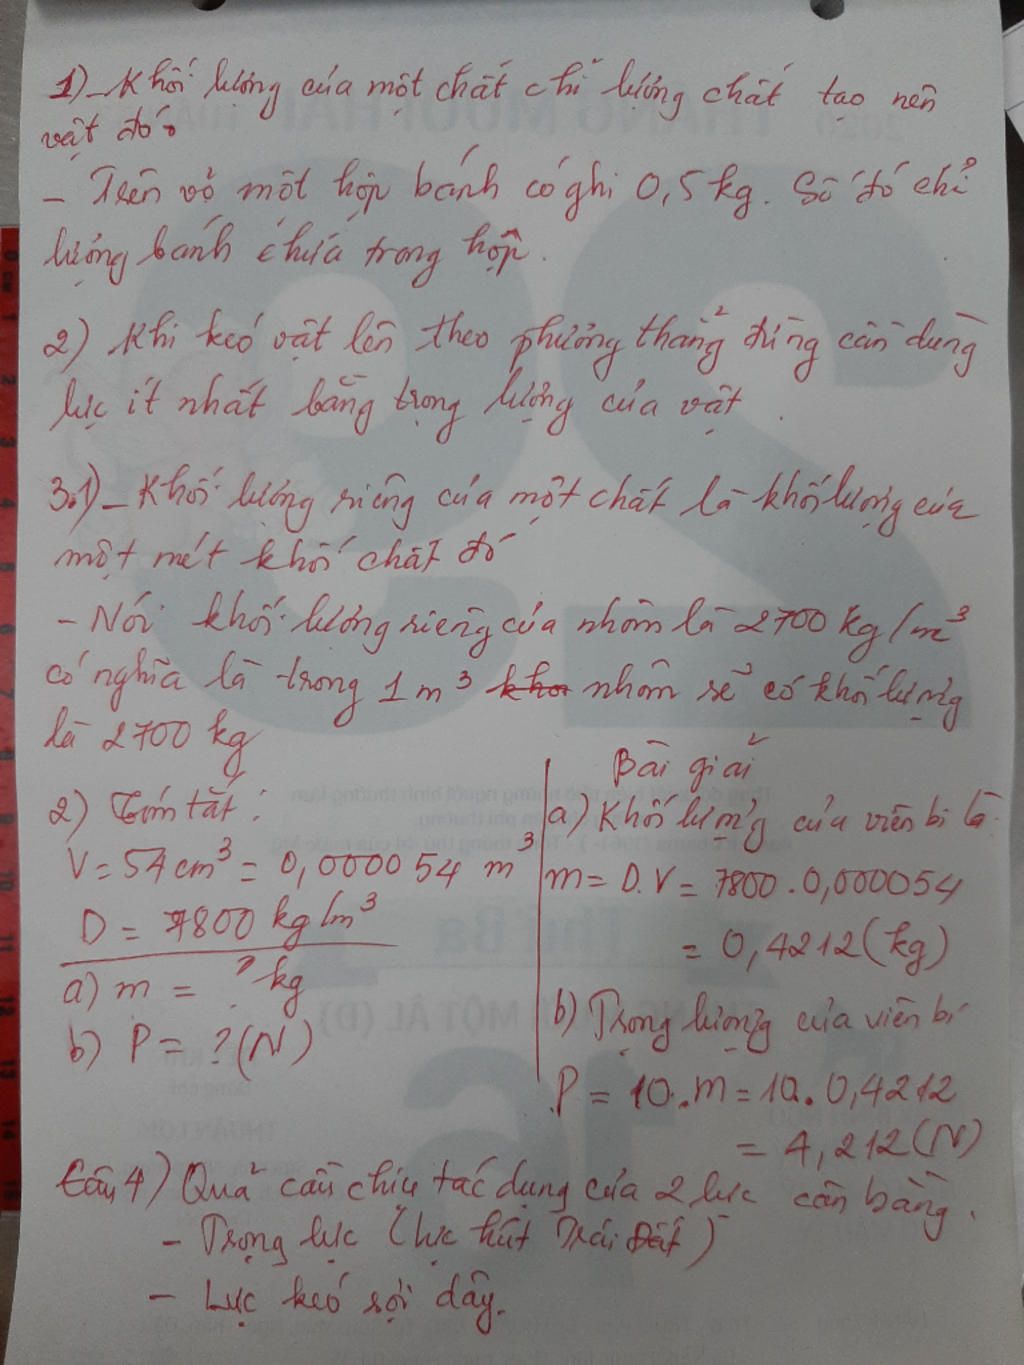 1)_ Khối lượng của một chất chỉ lượng chất tạo nên
vật đó.
- Trên vỏ một hộp bánh có ghi 0,5 kg. Số đó chỉ
lượng bánh chứa trong hộp.
2) Khi kéo vật lên theo phương thẳng đứng cần dùng
lực ít nhất bằng trọng lượng của vật.
3.1)_ Khối lượng riêng của một chất là khối lượng của
một mét khối chất đó
- Nói khối lượng riêng của nhôm là 2700 kg/m³
có nghĩa là trong 1m³ nhôm sẽ có khối lượng
là 2700 kg
2) Tóm tắt:
V = 54 cm³ = 0,000054 m³
D = 7800 kg/m³
a) m = ? kg
b) P = ? (N)
Bài giải
a) Khối lượng của viên bi là:
m = D.V = 7800 . 0,000054
= 0,4212 (kg)
b) Trọng lượng của viên bi
P = 10.m = 10. 0,4212
= 4,212 (N)
Câu 4) Quả cầu chịu tác dụng của 2 lực cân bằng.
- Trọng lực (lực hút Trái Đất)
- Lực kéo sợi dây.